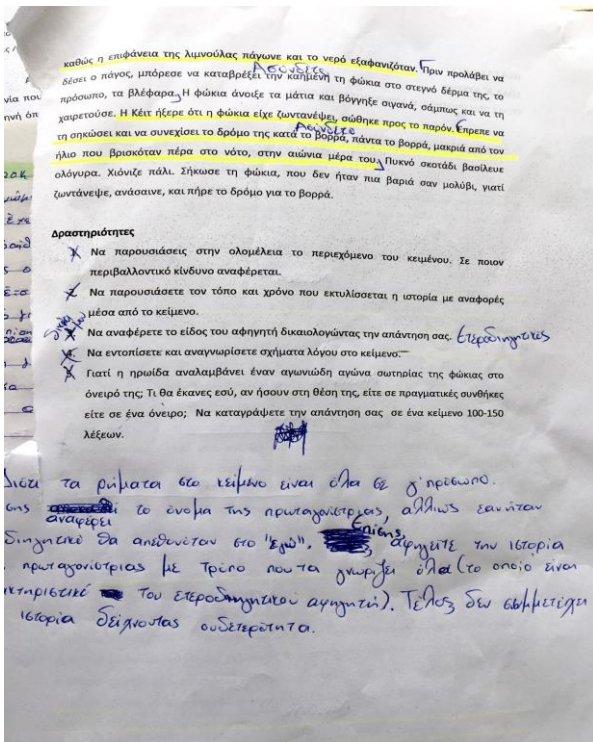 καθώς η επιφάνεια της λιμνούλας πάγωνε και το νερό εξαφανιζόταν. Πριν προλάβει να
Ασύνδετο
δέσει ο πάγος, μπόρεσε να καταβρέξει την καημένη τη φώκια στο στεγνό δέρμα της, το
πρόσωπο, τα βλέφαρα. Η φώκια άνοιξε τα μάτια και βόγγηξε σιγανά, σάμπως και να τη
χαιρετούσε. Η Κέιτ ήξερε ότι η φώκια είχε ζωντανέψει, σώθηκε προς το παρόν. Έπρεπε να
Ασύνδετο
τη σηκώσει και να συνεχίσει το δρόμο της κατά το βορρά, πάντα το βορρά, μακριά από τον
ήλιο που βρισκόταν πέρα στο νότο, στην αιώνια μέρα του. Πυκνό σκοτάδι βασίλευε
ολόγυρα. Χιόνιζε πάλι. Σήκωσε τη φώκια, που δεν ήταν πια βαριά σαν μολύβι, γιατί
ζωντάνεψε, ανάσαινε, και πήρε το δρόμο για το βορρά.
Δραστηριότητες
Να παρουσιάσεις στην ολομέλεια το περιεχόμενο του κειμένου. Σε ποιον
περιβαλλοντικό κίνδυνο αναφέρεται.
Να παρουσιάσετε τον τόπο και χρόνο που εκτυλίσσεται η ιστορία με αναφορές
μέσα από το κείμενο.
Να αναφέρετε το είδος του αφηγητή δικαιολογώντας την απάντηση σας. Ετεροδιηγητικός
Να εντοπίσετε και αναγνωρίσετε σχήματα λόγου στο κείμενο.
Γιατί η ηρωίδα αναλαμβάνει έναν αγωνιώδη αγώνα σωτηρίας της φώκιας στο
όνειρό της; Τι θα έκανες εσύ, αν ήσουν στη θέση της, είτε σε πραγματικές συνθήκες
είτε σε ένα όνειρο; Να καταγράψετε την απάντηση σας σε ένα κείμενο 100-150
λέξεων.
Διότι τα ρήματα στο κείμενο είναι όλα σε γ' πρόσωπο.
σης αναφέρει το όνομα της πρωταγωνίστριας, αλλιώς εαν ήταν
διηγητικό θα απευθυνόταν στο "Εγώ". Επίσης, αφηγείτε την ιστορία
πρωταγωνίστριας με τρόπο που τα γνωρίζει όλα (το οποίο είναι
κτηριστικό του ετεροδιηγητικού αφηγητή). Τέλος δεν συμμετέχει
ιστορία δείχνοντας ουδετερότητα.